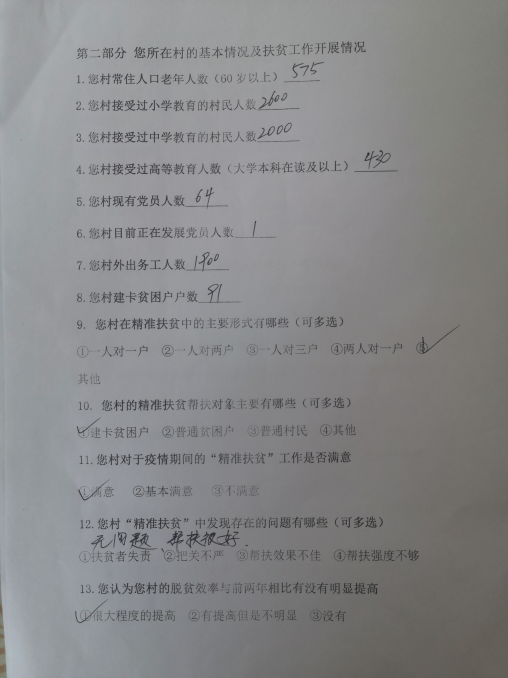 第二部分 您所在村的基本情况及扶贫工作开展情况
1.您村常住人口老年人数（60岁以上）575
2.您村接受过小学教育的村民人数2600
3.您村接受过中学教育的村民人数2000
4.您村接受过高等教育人数（大学本科在读及以上）430
5.您村现有党员人数 64
6.您村目前正在发展党员人数 1
7.您村外出务工人数 1900
8.您村建卡贫困户户数 91
9. 您村在精准扶贫中的主要形式有哪些（可多选）
①一人对一户 ②一人对两户 ③一人对三户 ④两人对一户 ⑤✓
其他
10. 您村的精准扶贫帮扶对象主要有哪些（可多选）
①✓建卡贫困户 ②普通贫困户 ③普通村民 ④其他
11.您村对于疫情期间的“精准扶贫”工作是否满意
①✓满意 ②基本满意 ③不满意
12.您村“精准扶贫”中发现存在的问题有哪些（可多选）
无问题，帮扶很好.
①扶贫者失责 ②把关不严 ③帮扶效果不佳 ④帮扶强度不够
13.您认为您村的脱贫效率与前两年相比有没有明显提高
①✓很大程度的提高 ②有提高但是不明显 ③没有